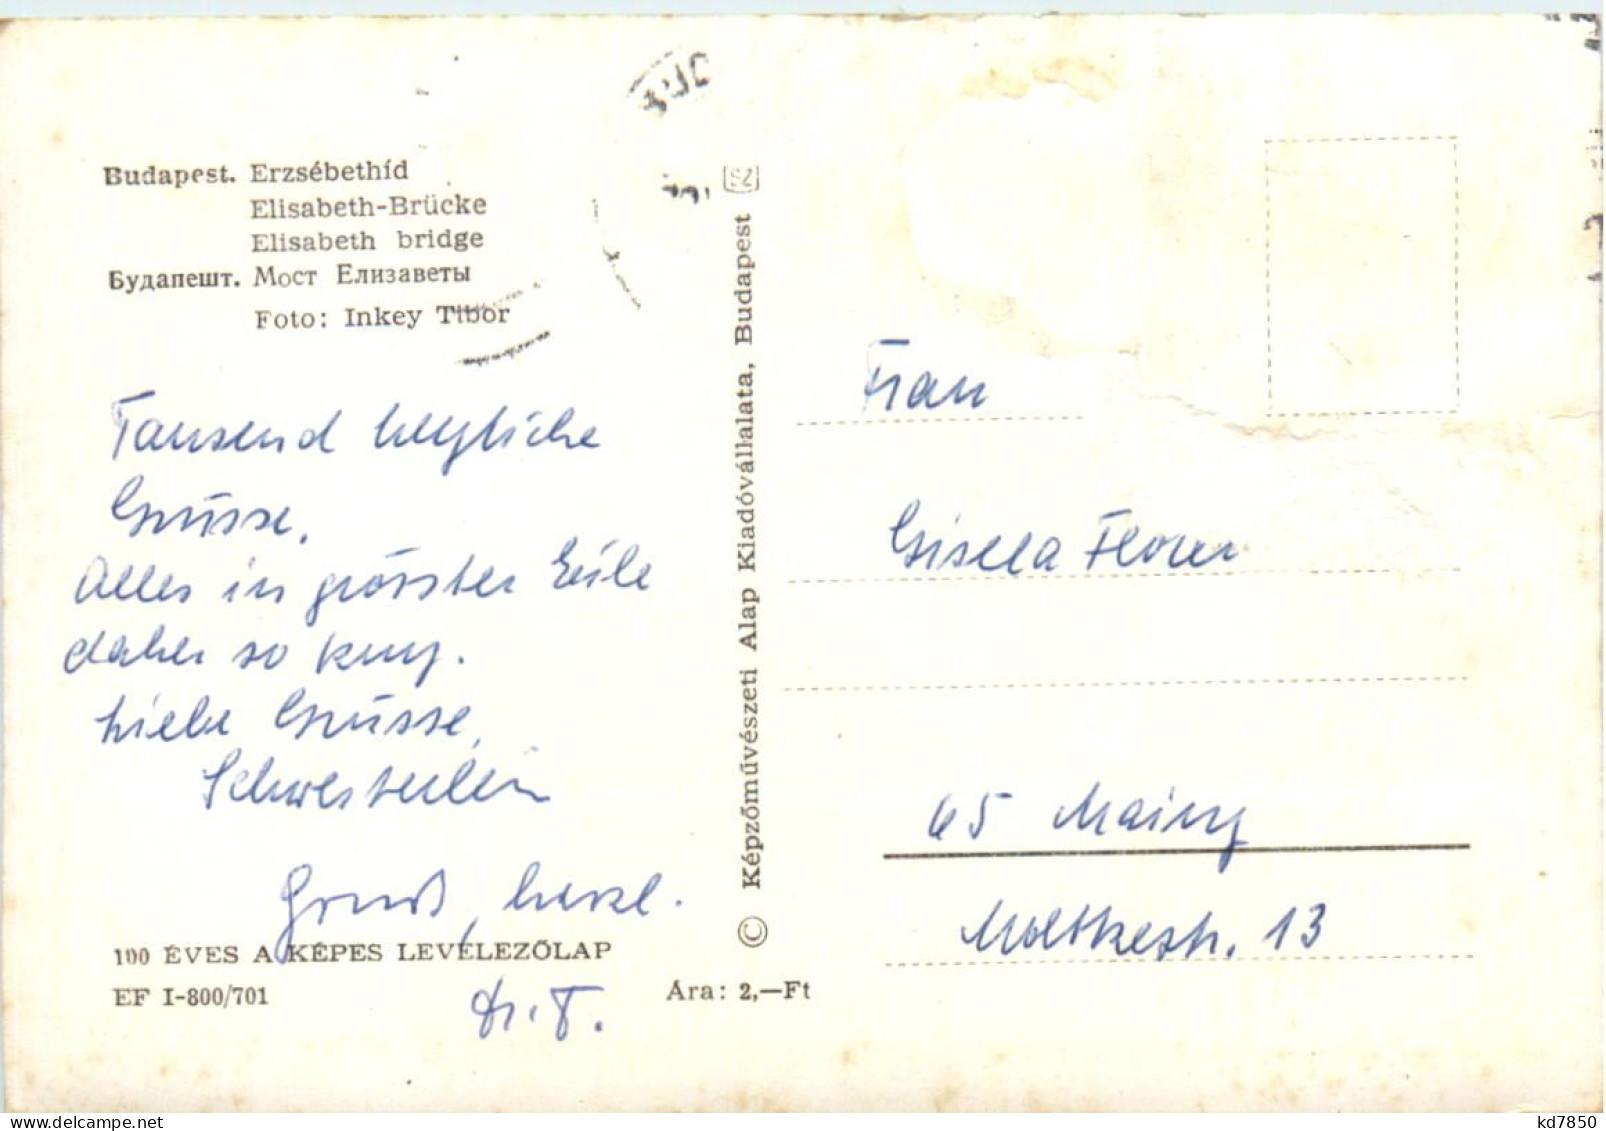 Budapest. Erzsébethíd
Elisabeth-Brücke
Elisabeth bridge
Будапешт. Мост Елизаветы
Foto: Inkey Tibor
Tausend herzliche
Grüsse.
Alles in grösster Eile
daher so kurz.
Liebe Grüsse,
Schwesterlein
Gruß, herzl.
Dr. F.
100 ÉVES A KÉPES LEVELEZŐLAP
EF I-800/701
Ára: 2,—Ft
© Képzőművészeti Alap Kiadóvállalata, Budapest
SZ
Frau
Gisela
65 Mainz
Moltkestr. 13
kd7850